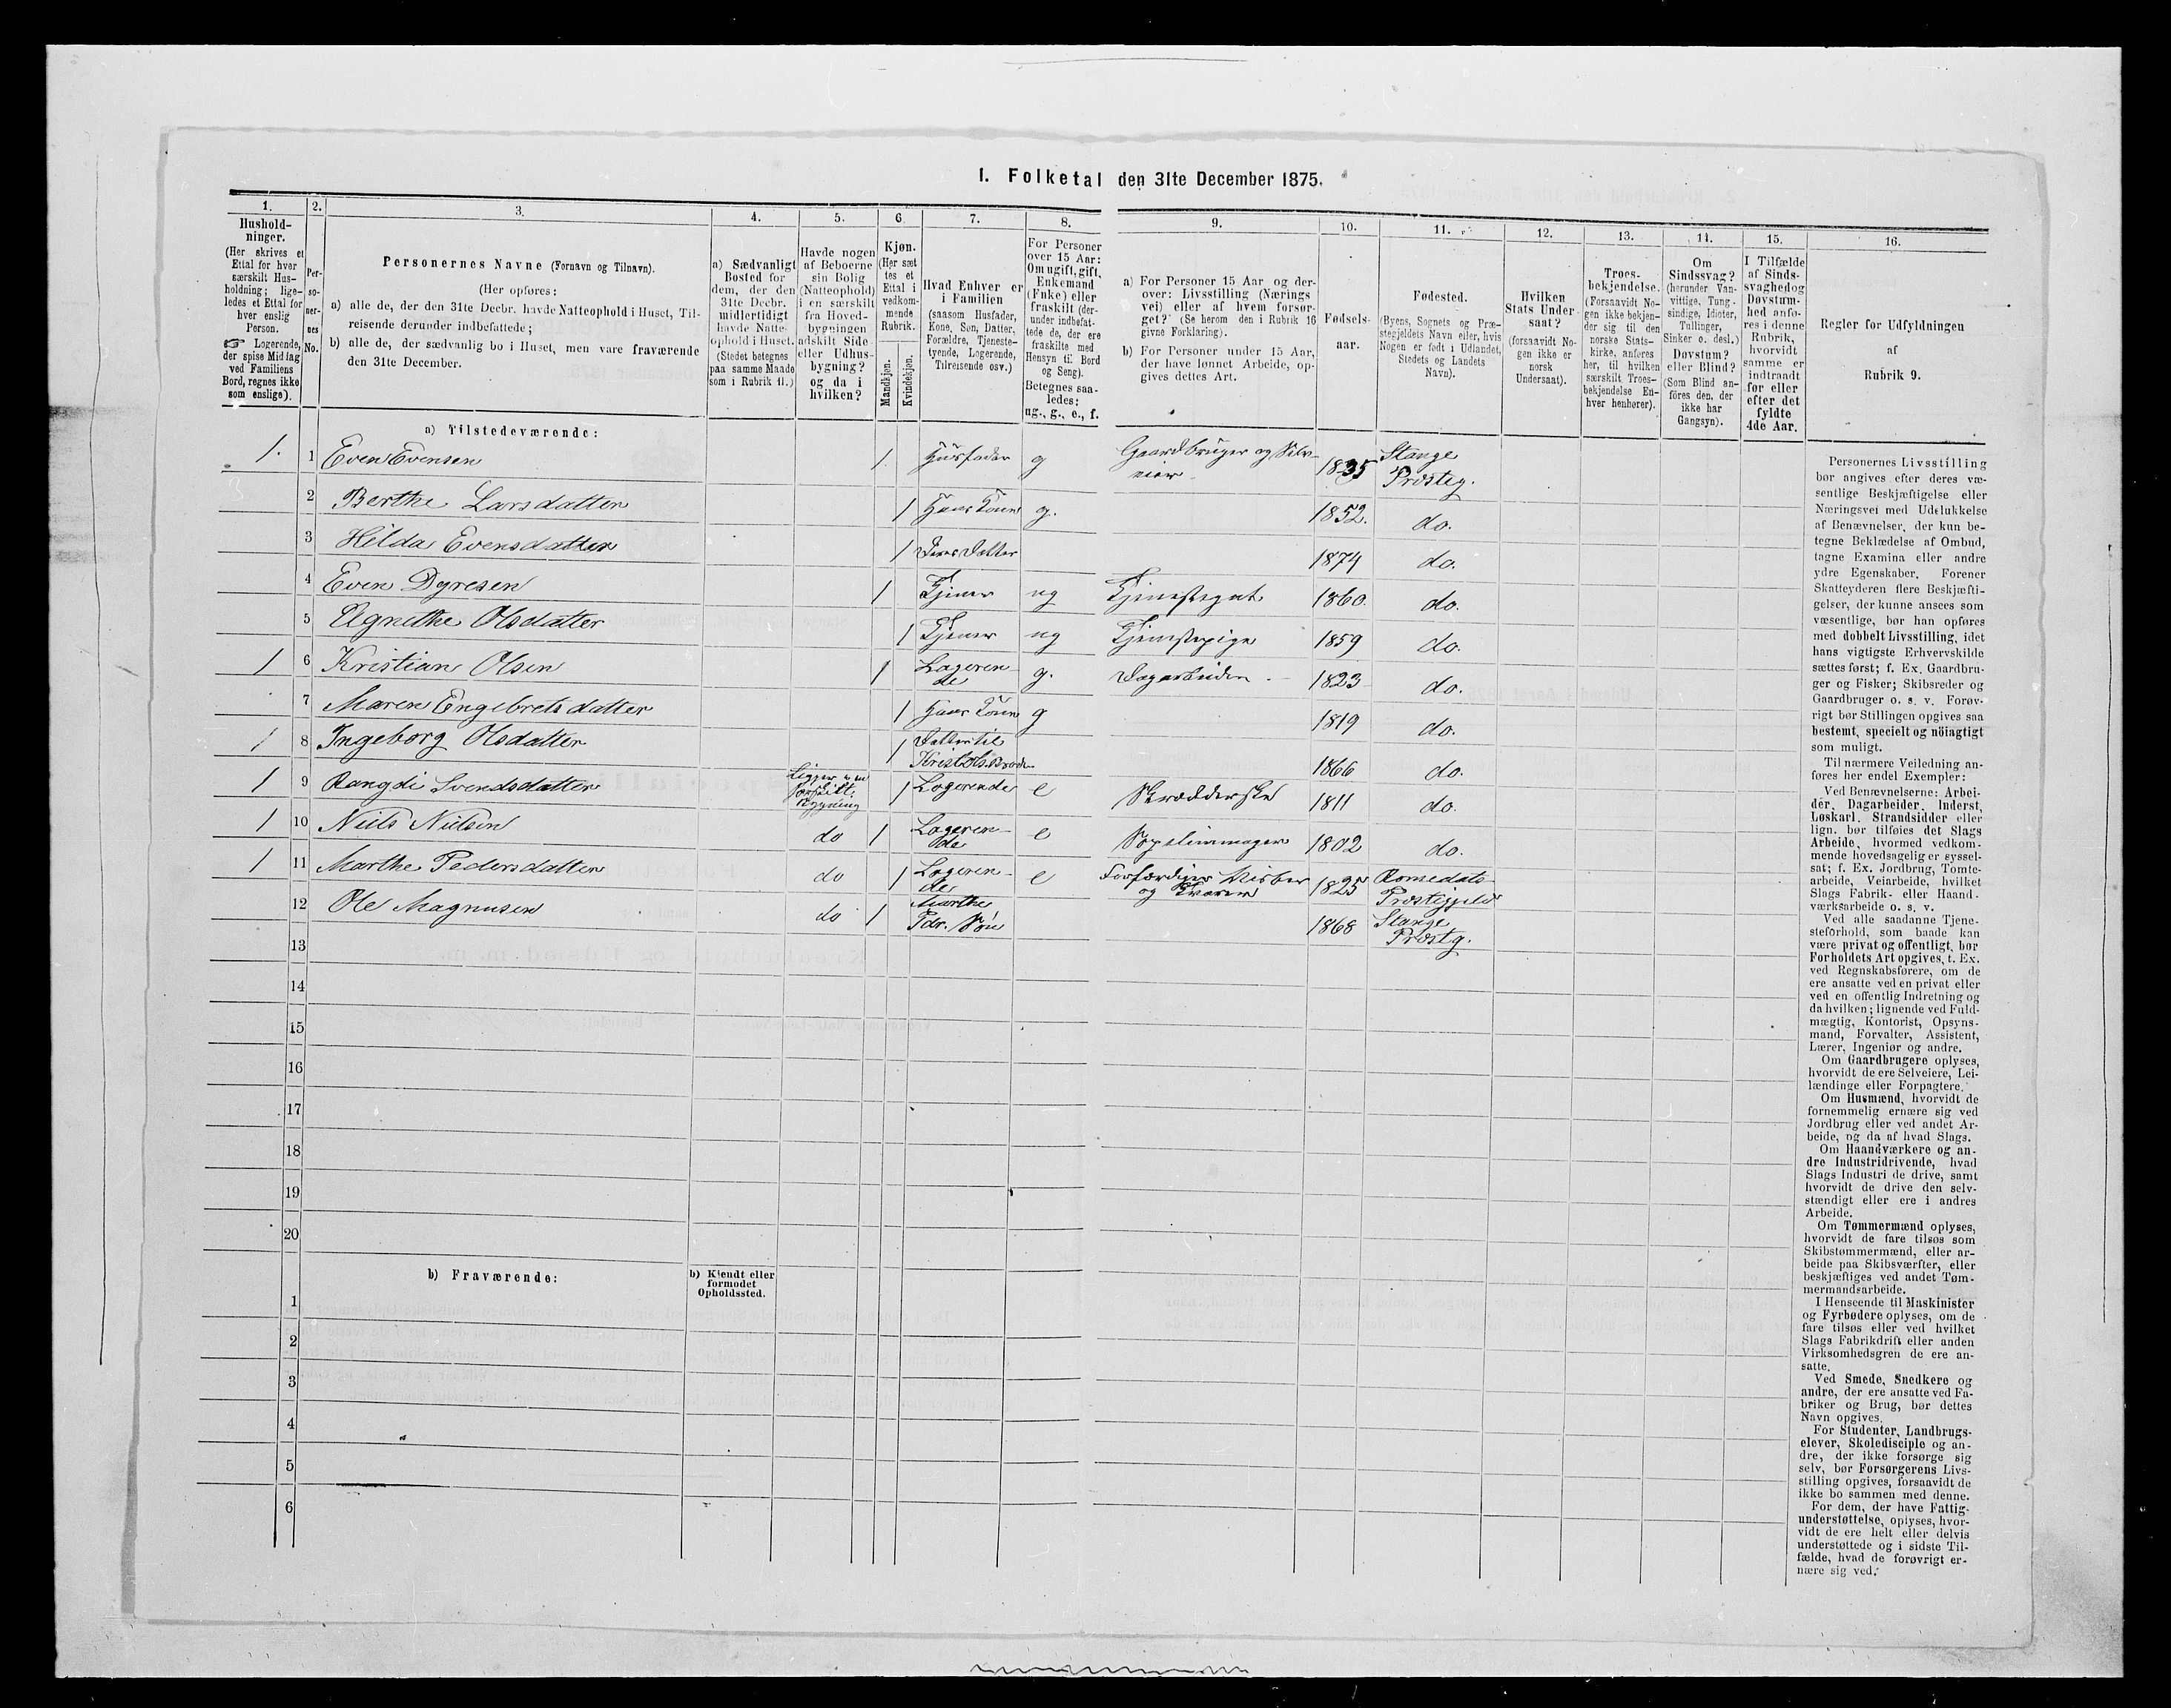 1. Folketal den 31te December 1875.
1.
Hushold-
ninger.
(Her skrives et
Ettal for hver
særskilt Hus-
holdning; lige-
ledes et Ettal for
hver enslig
Person.
Logerende,
der spise Middag
ved Familiens
Bord, regnes ikke
som enslige).
2.
Per-
so-
ner-
nes
No.
3.
Personernes Navne (Fornavn og Tilnavn).
(Her opføres:
a) alle de, der den 31te Decbr. havde Natteophold i Huset, Til-
reisende derunder indbefattede;
b) alle de, der sædvanlig bo i Huset, men vare fraværende
den 31te December.
4.
a) Sædvanligt
Bosted for
dem, der den
31te Decbr.
midlertidigt
havde Natte-
ophold i Huset.
(Stedet betegnes
paa samme Maade
som i Rubrik 11.)
5.
Havde nogen
af Beboerne
sin Bolig
(Natteophold)
i en særskilt
fra Hoved-
bygningen
adskilt Side
eller Udhus-
bygning?
og da i
hvilken?
6.
Kjøn.
(Her sæt
tes et
Ettal i
vedkom-
mende
Rubrik.
Mandkjøn.
Kvindekjøn.
7.
Hvad Enhver er
i Familien
(saasom Husfader,
Kone, Søn, Datter,
Forældre, Tjeneste-
tyende, Logerende,
Tilreisende osv.)
8.
For Personer
over 15 Aar:
Om ugift, gift,
Enkemand
(Enke) eller
fraskilt (der-
under indbefat-
tede de, der ere
fraskilte med
Hensyn til Bord
og Seng).
Betegnes saa-
ledes:
ug., g., e., f.
9.
a) For Personer 15 Aar og der-
over: Livsstilling (Nærings
vei) eller af hvem forsør-
get? (Se herom den i Rubrik 16
givne Forklaring).
b) For Personer under 15 Aar,
der have lønnet Arbeide, op-
gives dettes Art.
10.
Fødsels-
aar.
11.
Fødested.
(Byens, Sognets og Præ-
stegjeldets Navn eller, hvis
Nogen er født i Udlandet,
Stedets og Landets
Navn).
12.
Hvilken
Stats Under-
saat?
(forsaavidt No-
gen ikke er
norsk
Undersaat).
13.
Troes-
bekjendelse.
(Forsaavidt No-
gen ikke bekjen-
der sig til den
norske Stats-
kirke, anføres
her, til hvilken
særskilt Troes-
bekjendelse En-
hver henhører).
14.
Om
Sindssvag?
(herunder Van-
vittige, Tung-
sindige, Idioter,
Tullinger,
Sinker o. desl.)
Døvstum?
eller Blind?
(Som Blind an-
føres den, der
ikke har
Gangsyn).
15.
I Tilfælde
af Sinds-
svaghed og
Døvstum-
hed anfø-
res i denne
Rubrik,
hvorvidt
samme er
indtraadt
før eller
efter det
fyldte
4de Aar.
16.
Regler for Udfyldningen
af
Rubrik 9.
a) Tilstedeværende:
1. 1 Even Evensen 1. Husfader g Gaardbruger og Selv-
eier 1835 Stange
Præsteg.
2 Berthe Larsdatter 1 Hans Kone g. 1852. do.
3 Hilda Evensdatter 1 Deres Datter 1874 do.
4 Even Dyresen 1 Tjener ug Tjenestegut 1860. do.
5 Agnethe Olsdatter 1 Tjener ug Tjenestepige 1859 do.
1 6 Kristian Olsen 1 Logeren
de g. Dagarbeider 1823 do.
7 Maren Engebretsdatter 1 Hans Kone g 1819 do.
1 8 Ingeborg Olsdatter 1 Datter til
Krist Ols. 1866 do.
1 9 Rangdi Svendsdatter Ligger i en
særskilt
Bygning 1 Logerende e Skrædderske 1811 do.
1 10 Niels Nielsen do 1 Logeren-
de e 1802 do.
1 11 Marthe Pedersdatter do 1 Logeren-
de e Forfærdiger
og 1825 Romedals
Præstegjeld
12 Ole Magnusen do 1 Marthe
Pdr. Søn 1868 Stange
Præstg.
13
14
15
16
17
18
19
20
b) Fraværende:
b) Kjendt eller
formodet
Opholdssted.
1
2
3
4
5
6
Personernes Livsstilling
bør angives efter deres væ-
sentlige Beskjæftigelse eller
Næringsvei med Udelukkelse
af Benævnelser, der kun be-
tegne Beklædelse af Ombud,
tagne Examina eller andre
ydre Egenskaber. Forener
Skatteyderen flere Beskjæfti-
gelser, der kunne ansees som
væsentlige, bør han opføres
med dobbelt Livsstilling, idet
hans vigtigste Erhvervskilde
sættes først; f. Ex. Gaardbru-
ger og Fisker; Skibsreder og
Gaardbruger o. s. v. Forøv-
rigt bør Stillingen opgives saa
bestemt, specielt og nöiagtigt
som muligt.
Til nærmere Veiledning an-
føres her endel Exempler:
Ved Benævnelserne: Arbei-
der, Dagarbeider, Inderst,
Løskarl, Strandsidder eller
lign. bør tilføies det Slags
Arbeide, hvormed vedkom-
mende hovedsagelig er syssel-
sat; f. Ex. Jordbrug, Tomte-
arbeide, Veiarbeide, hvilket
Slags Fabrik- eller Haand-
værksarbeide o. s. v.
Ved alle saadanne Tjene-
steforhold, som baade kan
være privat og offentligt, bør
Forholdets Art opgives, t. Ex.
ved Regnskabsførere, om de
ere ansatte ved en privat eller
ved en offentlig Indretning og
da hvilken; lignende ved Fuld-
mægtig, Kontorist, Opsyns-
mand, Forvalter, Assistent,
Lærer, Ingeniør og andre.
Om Gaardbrugere oplyses,
hvorvidt de ere Selveiere, Lei-
lændinge eller Forpagtere.
Om Husmænd, hvorvidt de
fornemmelig ernære sig ved
Jordbrug eller ved andet Ar-
beide, og da af hvad Slags.
Om Haandværkere og an-
dre Industridrivende, hvad
Slags Industri de drive, samt
hvorvidt de drive den selv-
stændigt eller ere i andres
Arbeide.
Om Tømmermænd oplyses,
hvorvidt de fare tilsøs som
Skibstømmermænd, eller ar-
beide paa Skibsværfter, eller
beskjæftiges ved andet Tøm-
mermandsarbeide.
I Henseende til Maskinister
og Fyrbødere oplyses, om de
fare tilsøs eller ved hvilket
Slags Fabrikdrift eller anden
Virksomhedsgren de ere an-
satte.
Ved Smede, Snedkere og
andre, der ere ansatte ved Fa-
briker og Brug, bør dettes
Navn opgives.
For Studenter, Landbrugs-
elever, Skoledisciple og an-
dre, der ikke forsørge sig
selv, bør Forsørgerens Livs-
stilling opgives, forsaavidt de
ikke bo sammen med denne.
For dem, der have Fattig-
understøttelse, oplyses, hvor-
vidt de ere helt eller delvis
understøttede og i sidste Til-
fælde, hvad de forøvrigt er-
nære sig ved.